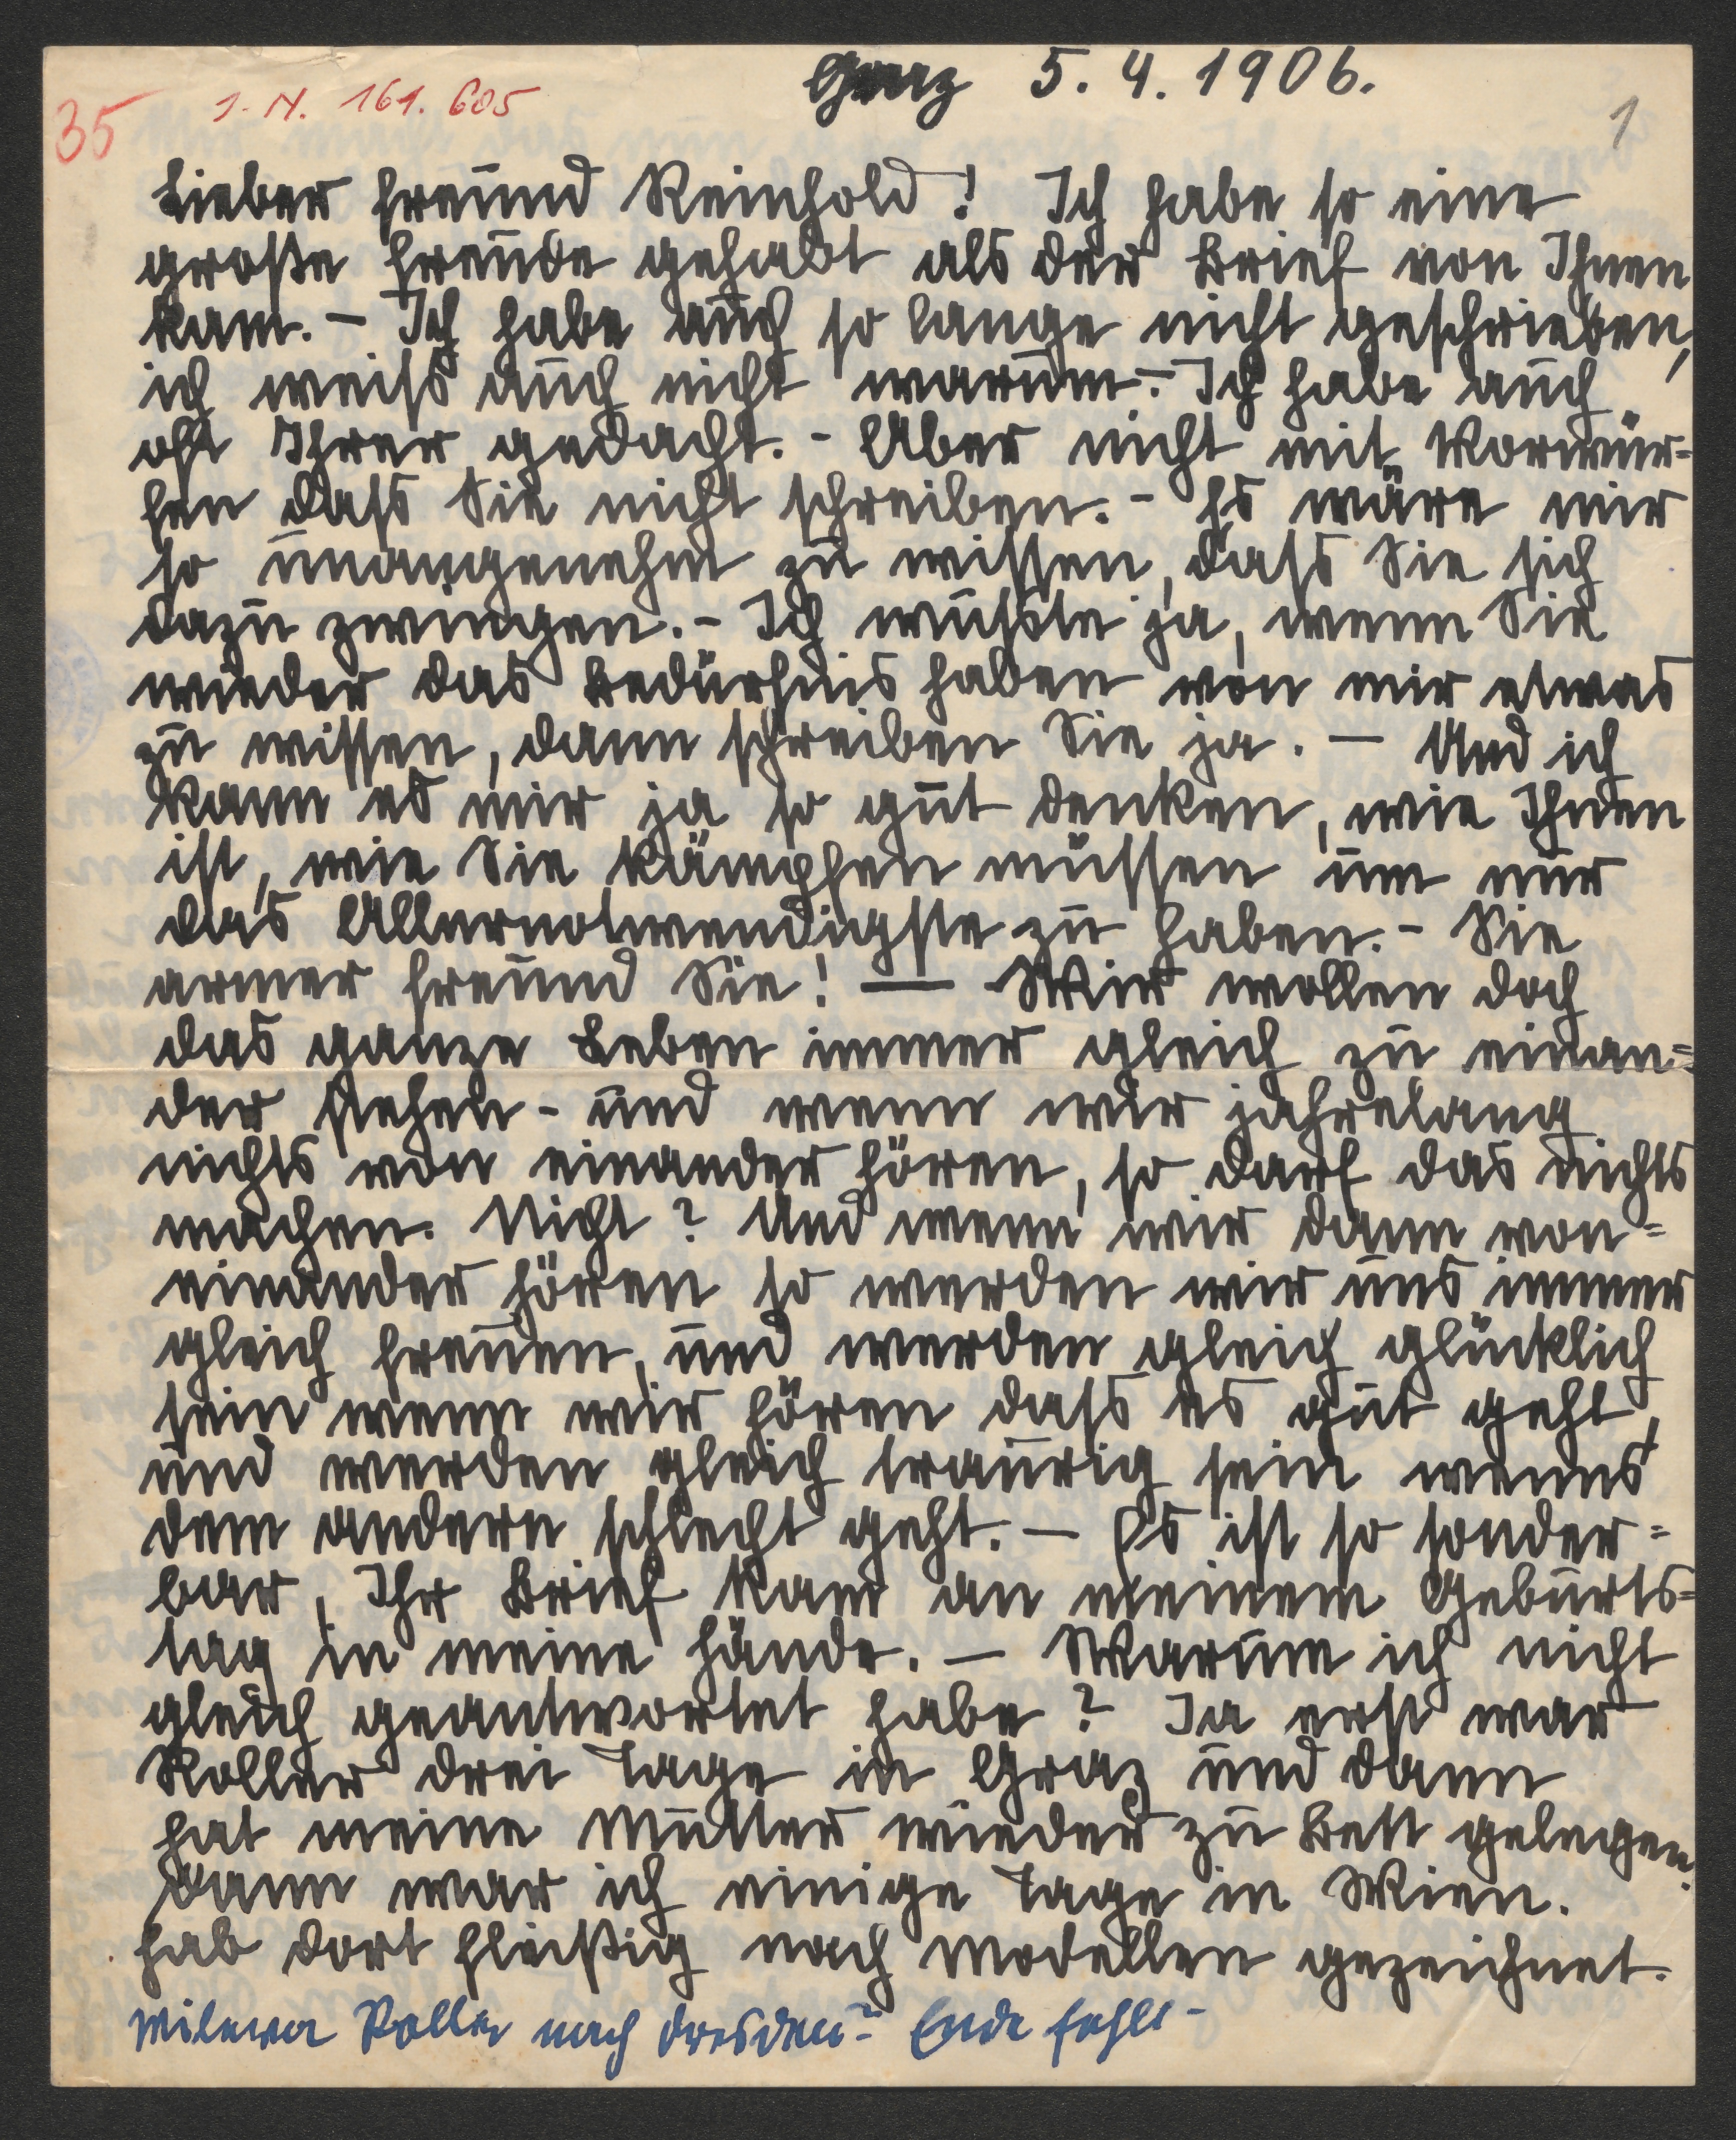 Graz 5.4.1906.
35 I.N. 161.605
1
Lieber Freund Reinhold! Ich habe so eine
große Freude gehabt als der Brief von Ihnen
kam. – Ich habe auch so lange nicht geschrieben,
ich weiss auch nicht warum. – Ich habe auch
oft Ihrer gedacht. – Aber nicht mit Vorwür=
fen dass Sie nicht schreiben. – Es wäre mir
so unangenehm zu wissen, dass Sie sich
dazu zwingen. – Ich wusste ja, wenn Sie
wieder das Bedürfnis haben von mir etwas
zu wissen, dann schreiben Sie ja. – Und ich
kann es mir ja so gut denken, wie Ihnen
ist, wie Sie kämpfen müssen um nur
das Allernotwendigste zu haben. – Sie
armer Freund Sie! — Wir wollen doch
das ganze Leben immer gleich zu einan=
der stehen – und wenn wir jahrelang
nichts von einander hören, so darf das nichts
machen. Nicht? Und wenn wir dann von=
einander hören so werden wir uns immer
gleich freuen, und werden gleich glücklich
sein wenn wir hören dass es gut geht,
und werden gleich traurig sein wenns
dem andern schlecht geht. – Es ist so sonder=
bar, Ihr Brief kam an meinem Geburts=
tag in meine Hände. – Warum ich nicht
gleich geantwortet habe? Ja erst war
Roller drei Tage in Graz und dann
hat meine Mutter wieder zu Bett gelegen.
Dann war ich einige Tage in Wien.
hab dort fleißig nach Modellen gezeichnet.
Milewa Roller nach Dresden? – Ende fehlt –